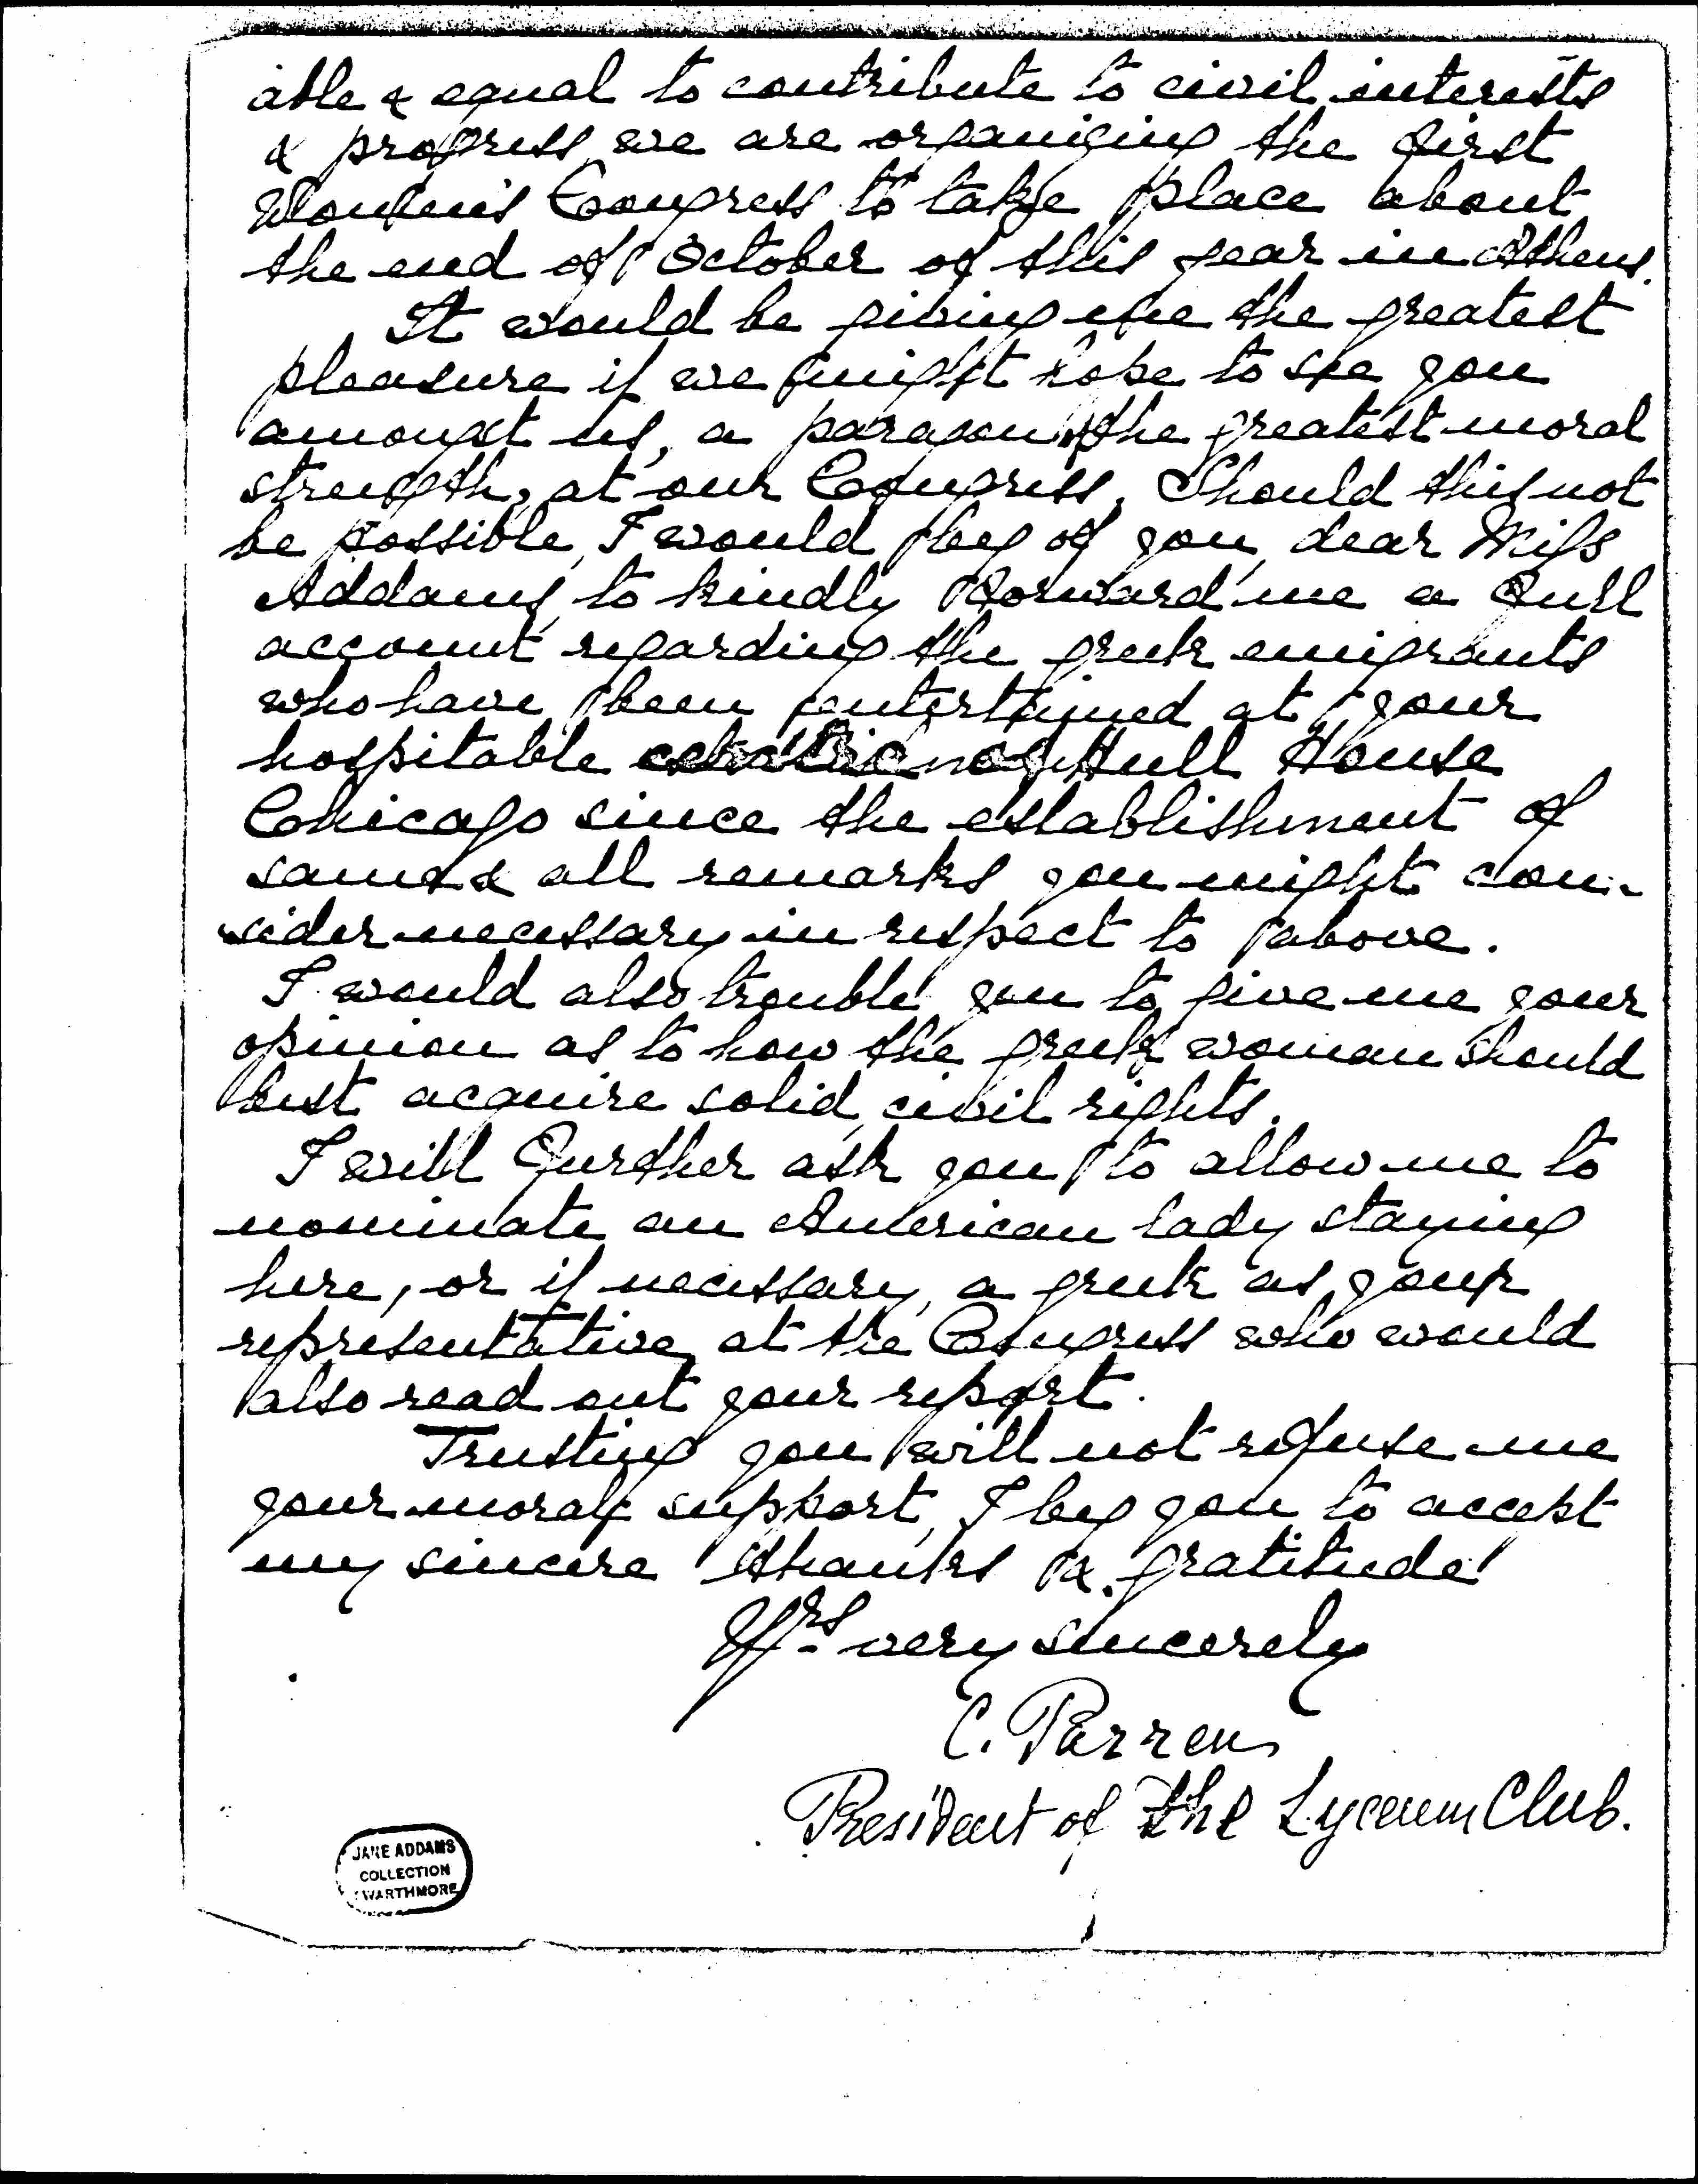 able & equal to contribute to civil interests
& progress, we are organizing the first
Women's Congress to take place about
the end of October of this year in Athens.
It would be giving me the greatest
pleasure if we might hope to see you
amongst us, a paragon of the greatest moral
strength, at our Congress. Should this not
be possible, I would beg of you, dear Miss
Addams, to kindly forward me a full
account regarding the greek emigrants
who have been entertained at your
hospitable Hull House
Chicago since the establishment of
same & all remarks you might con-
sider necessary in respect to above.
I would also trouble you to give me your
opinion as to how the greek woman should
best acquire solid, civil rights.
I will further ask you to allow me to
nominate an American lady staying
here, or if necessary, a greek as your
representative, at the Congress who would
also read out your report.
Trusting you will not refuse me
your moral support, I beg you to accept
my sincere thanks & gratitude
Yrs very sincerely
C. Parren
President of the Lyceum Club.
JANE ADDAMS
COLLECTION
SWARTHMORE